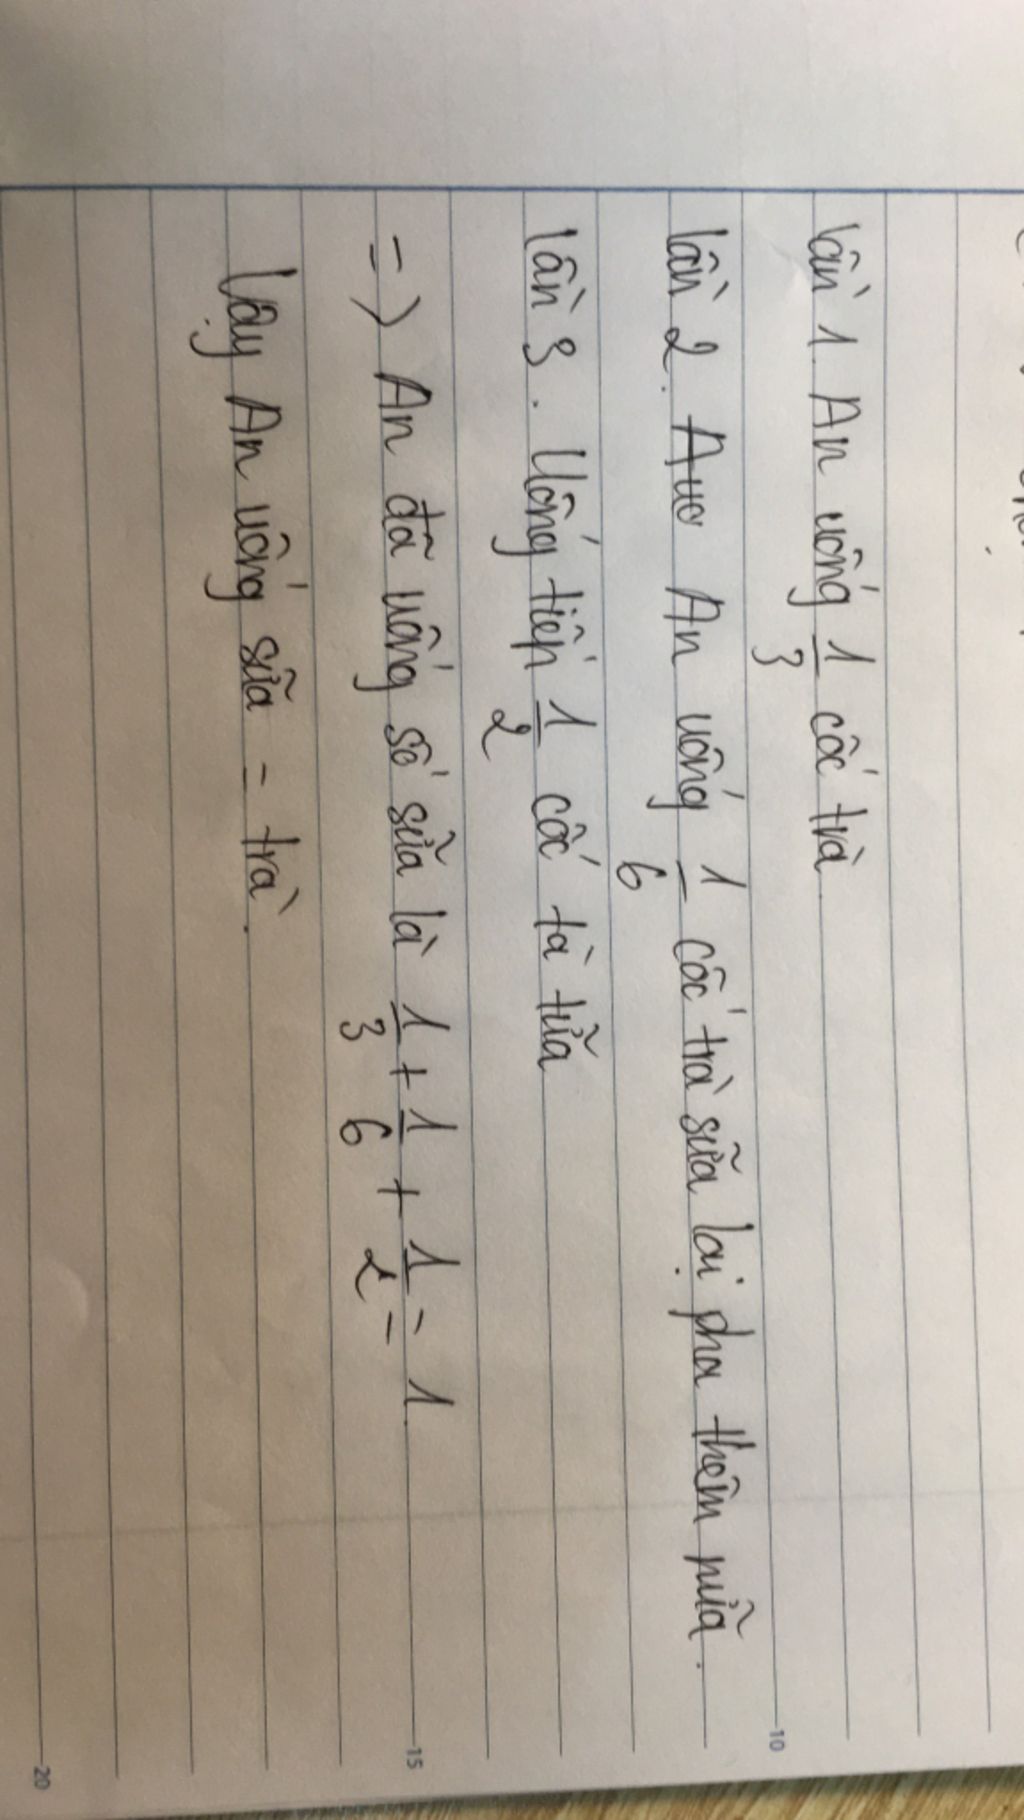 lần 1. An uống 1/3 cốc trà
lần 2. An uống 1/6 cốc trà sữa lại pha thêm nữa.
lần 3. Uống tiếp 1/2 cốc tà tữa
=> An đã uống số sữa là 1/3 + 1/6 + 1/2 = 1
Vậy An uống sữa = trà.
10
15
20